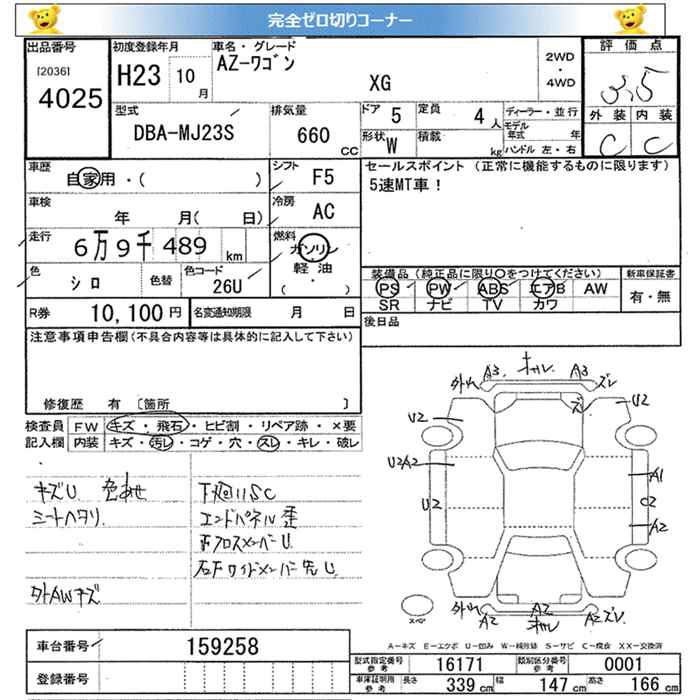 完全ゼロ切りコーナー
出品番号
[2036]
4025
初度登録年月
H23 10月
車名・グレード
AZ-ワゴン
XG
2WD
・
4WD
評価点
3.5
外装 内装
C C
型式
DBA-MJ23S
排気量
660 CC
ドア 5
定員 4 人
形状 W
積載 kg
ディーラー・並行
モデル年式 年
ハンドル 左・右
車歴
自家用・( )
シフト F5
車検
年 月( 日)
冷房 AC
走行
6万9千489 km
燃料
ガソリン
軽油
( ・ )
色
シロ
色替
色コード
26U
R券 10,100 円
名変通知期限 月 日
セールスポイント (正常に機能するものに限ります)
5速MT車!
装備品 (純正品に限り○をつけてください)
PS PW ABS エアB AW
SR ナビ TV カワ
新車保証書
有・無
後日品
注意事項申告欄(不具合内容等は具体的に記入して下さい)
修復歴 有 [箇所 ]
検査員記入欄
FW キズ・飛石・ヒビ割・リペア跡・×要
内装 キズ・汚レ・コゲ・穴・スレ・キレ・破レ
キズU 色あせ
シートヘタリ
外AWキズ
下廻リSC
エンドパネル歪
前クロスメンバーU
右Fサイドメンバー先U
外ハレ A3 ホカレ A3 ズレ
ズレ
U2 U2
U2A2 A1
U2 C2
A2
スペア
外ハレ A2 A2 ホカレ A2 ズレ
A-キズ E-エクボ U-凹み W-補修跡 S-サビ C-腐食 XX-交換済
車台番号 159258
登録番号
型式指定番号 参考 16171
類別区分番号 参考 0001
車庫証明用 参考 長さ 339 cm 幅 147 cm 高さ 166 cm